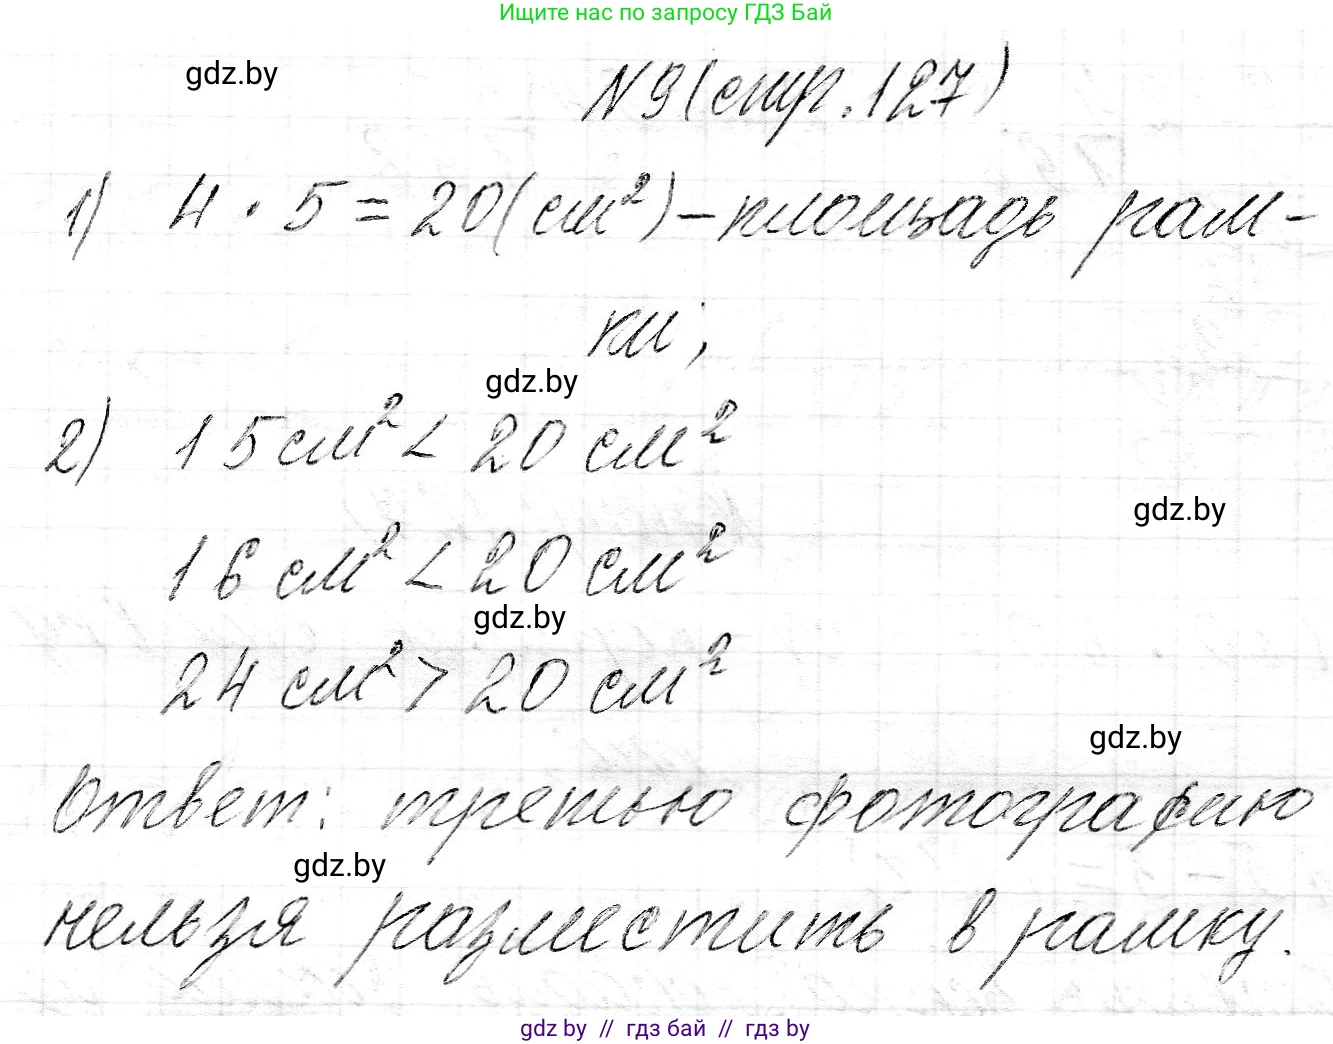 Ищите нас по запросу ГДЗ Бай
gdz.by
N9 (стр. 127)
1) 4 · 5 = 20 (см²) – площадь рам-
ки;
gdz.by
2) 15 см² < 20 см²
gdz.by
16 см² < 20 см²
gdz.by
24 см² > 20 см²
gdz.by
Ответ: третью фотографию
gdz.by
нельзя разместить в рамку.
gdz by // гдз бай // гдз by